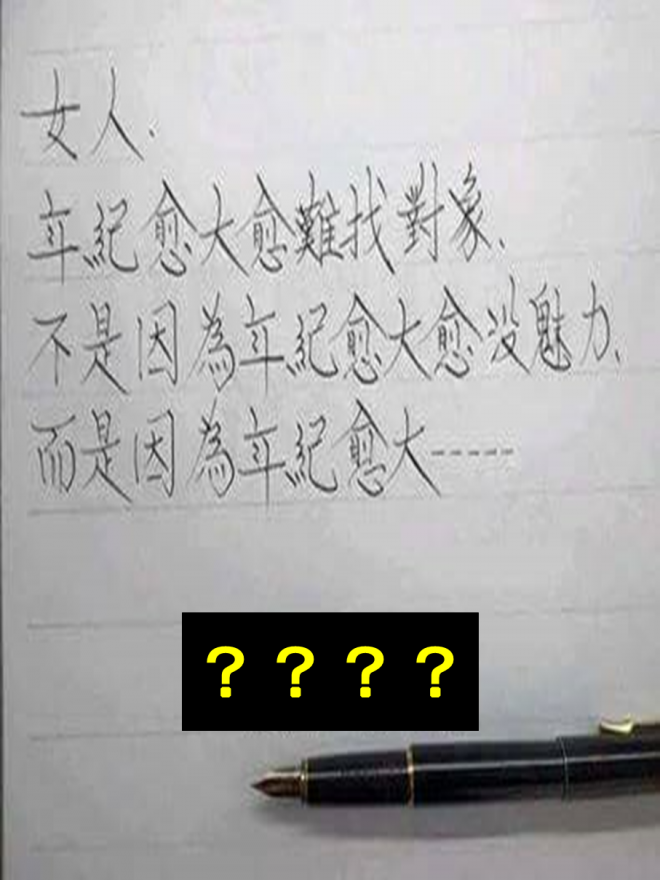 女人、
年紀愈大愈難找對象、
不是因為年紀愈大愈沒魅力、
而是因為年紀愈大-----
????